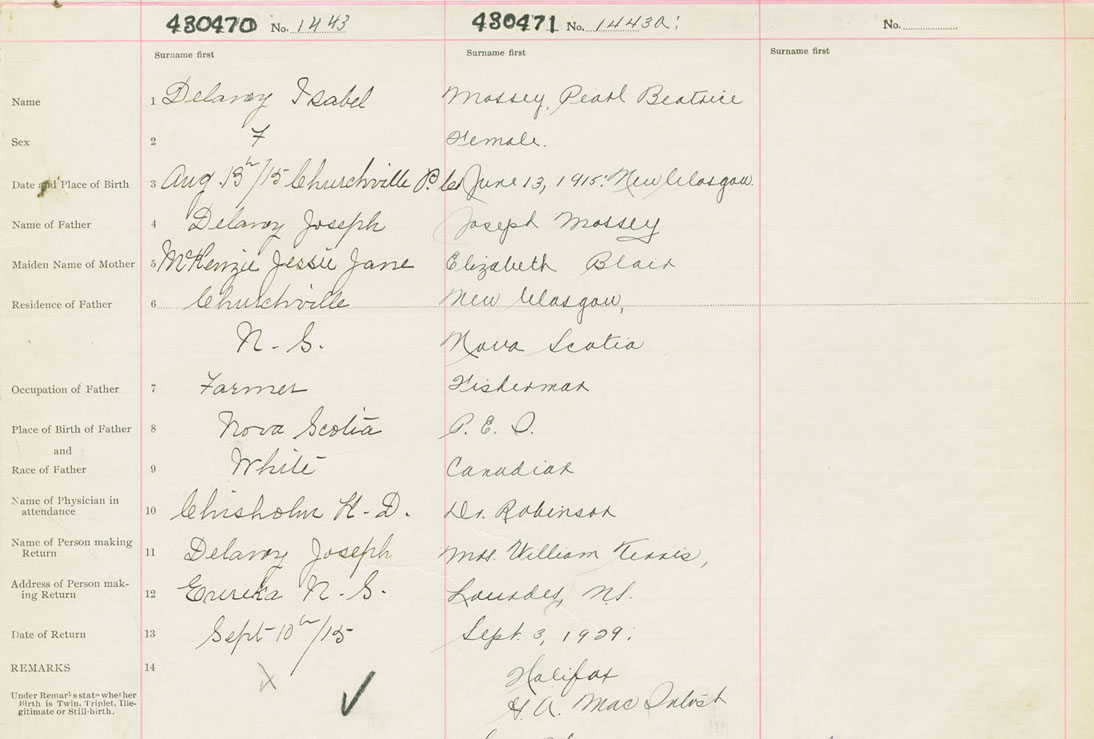 430470 No. 1443 430471 No. 1443a. No.
Surname first Surname first Surname first
Name 1 Delaroy Isabel Mossey, Pearl Beatrice
Sex 2 F Female.
Date and Place of Birth 3 Aug. 13th/15 Churchville P. Co June 13, 1915. New Glasgow.
Name of Father 4 Delaroy Joseph Joseph Mossey
Maiden Name of Mother 5 McKenzie Jessie Jane Elizabeth Blair
Residence of Father 6 Churchville New Glasgow,
N. S. Nova Scotia
Occupation of Father 7 Farmer Fisherman
Place of Birth of Father 8 Nova Scotia P. E. I.
and
Race of Father 9 White Canadian
Name of Physician in
attendance 10 Chisholm H. D. Dr. Robinson
Name of Person making
Return 11 Delaroy Joseph Mrs. William
Address of Person mak-
ing Return 12 Eureka N. S. Lourdes, N.S.
Date of Return 13 Sept 10th/15 Sept. 3, 1929.
REMARKS 14 Halifax
Under Remarks state whether
Birth is Twin, Triplet, Ille-
gitimate or Still-birth.
H. A. MacIntosh